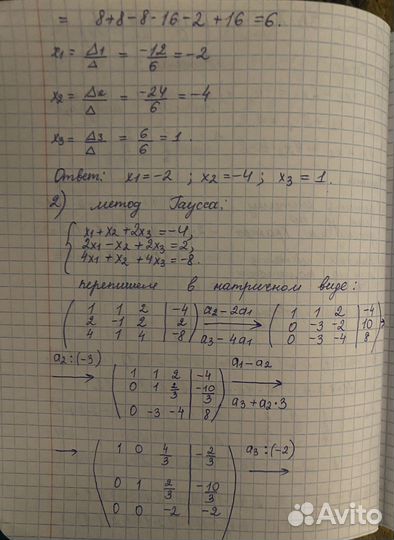 = 8+8-8-16-2+16=6.
x₁ = Δ₁/Δ = -12/6 = -2
x₂ = Δ₂/Δ = -24/6 = -4
x₃ = Δ₃/Δ = 6/6 = 1.
Ответ: x₁=-2 ; x₂=-4; x₃ = 1.
2) метод Гаусса:
{ x₁+x₂+2x₃=-4,
2x₁-x₂+2x₃=2,
4x₁+x₂+4x₃=-8.
перепишем в матричном виде:
( 1 1 2 | -4 ) a₂-2a₁ ( 1 1 2 | -4 )
( 2 -1 2 | 2 ) → ( 0 -3 -2 | 10 )
( 4 1 4 | -8 ) a₃-4a₁ ( 0 -3 -4 | 8 )
a₂:(-3) → ( 1 1 2 | -4 ) a₁-a₂
( 0 1 2/3 | -10/3 ) →
( 0 -3 -4 | 8 ) a₃+a₂·3
→ ( 1 0 4/3 | -2/3 ) a₃:(-2) →
( 0 1 2/3 | -10/3 )
( 0 0 -2 | -2 )
Avito